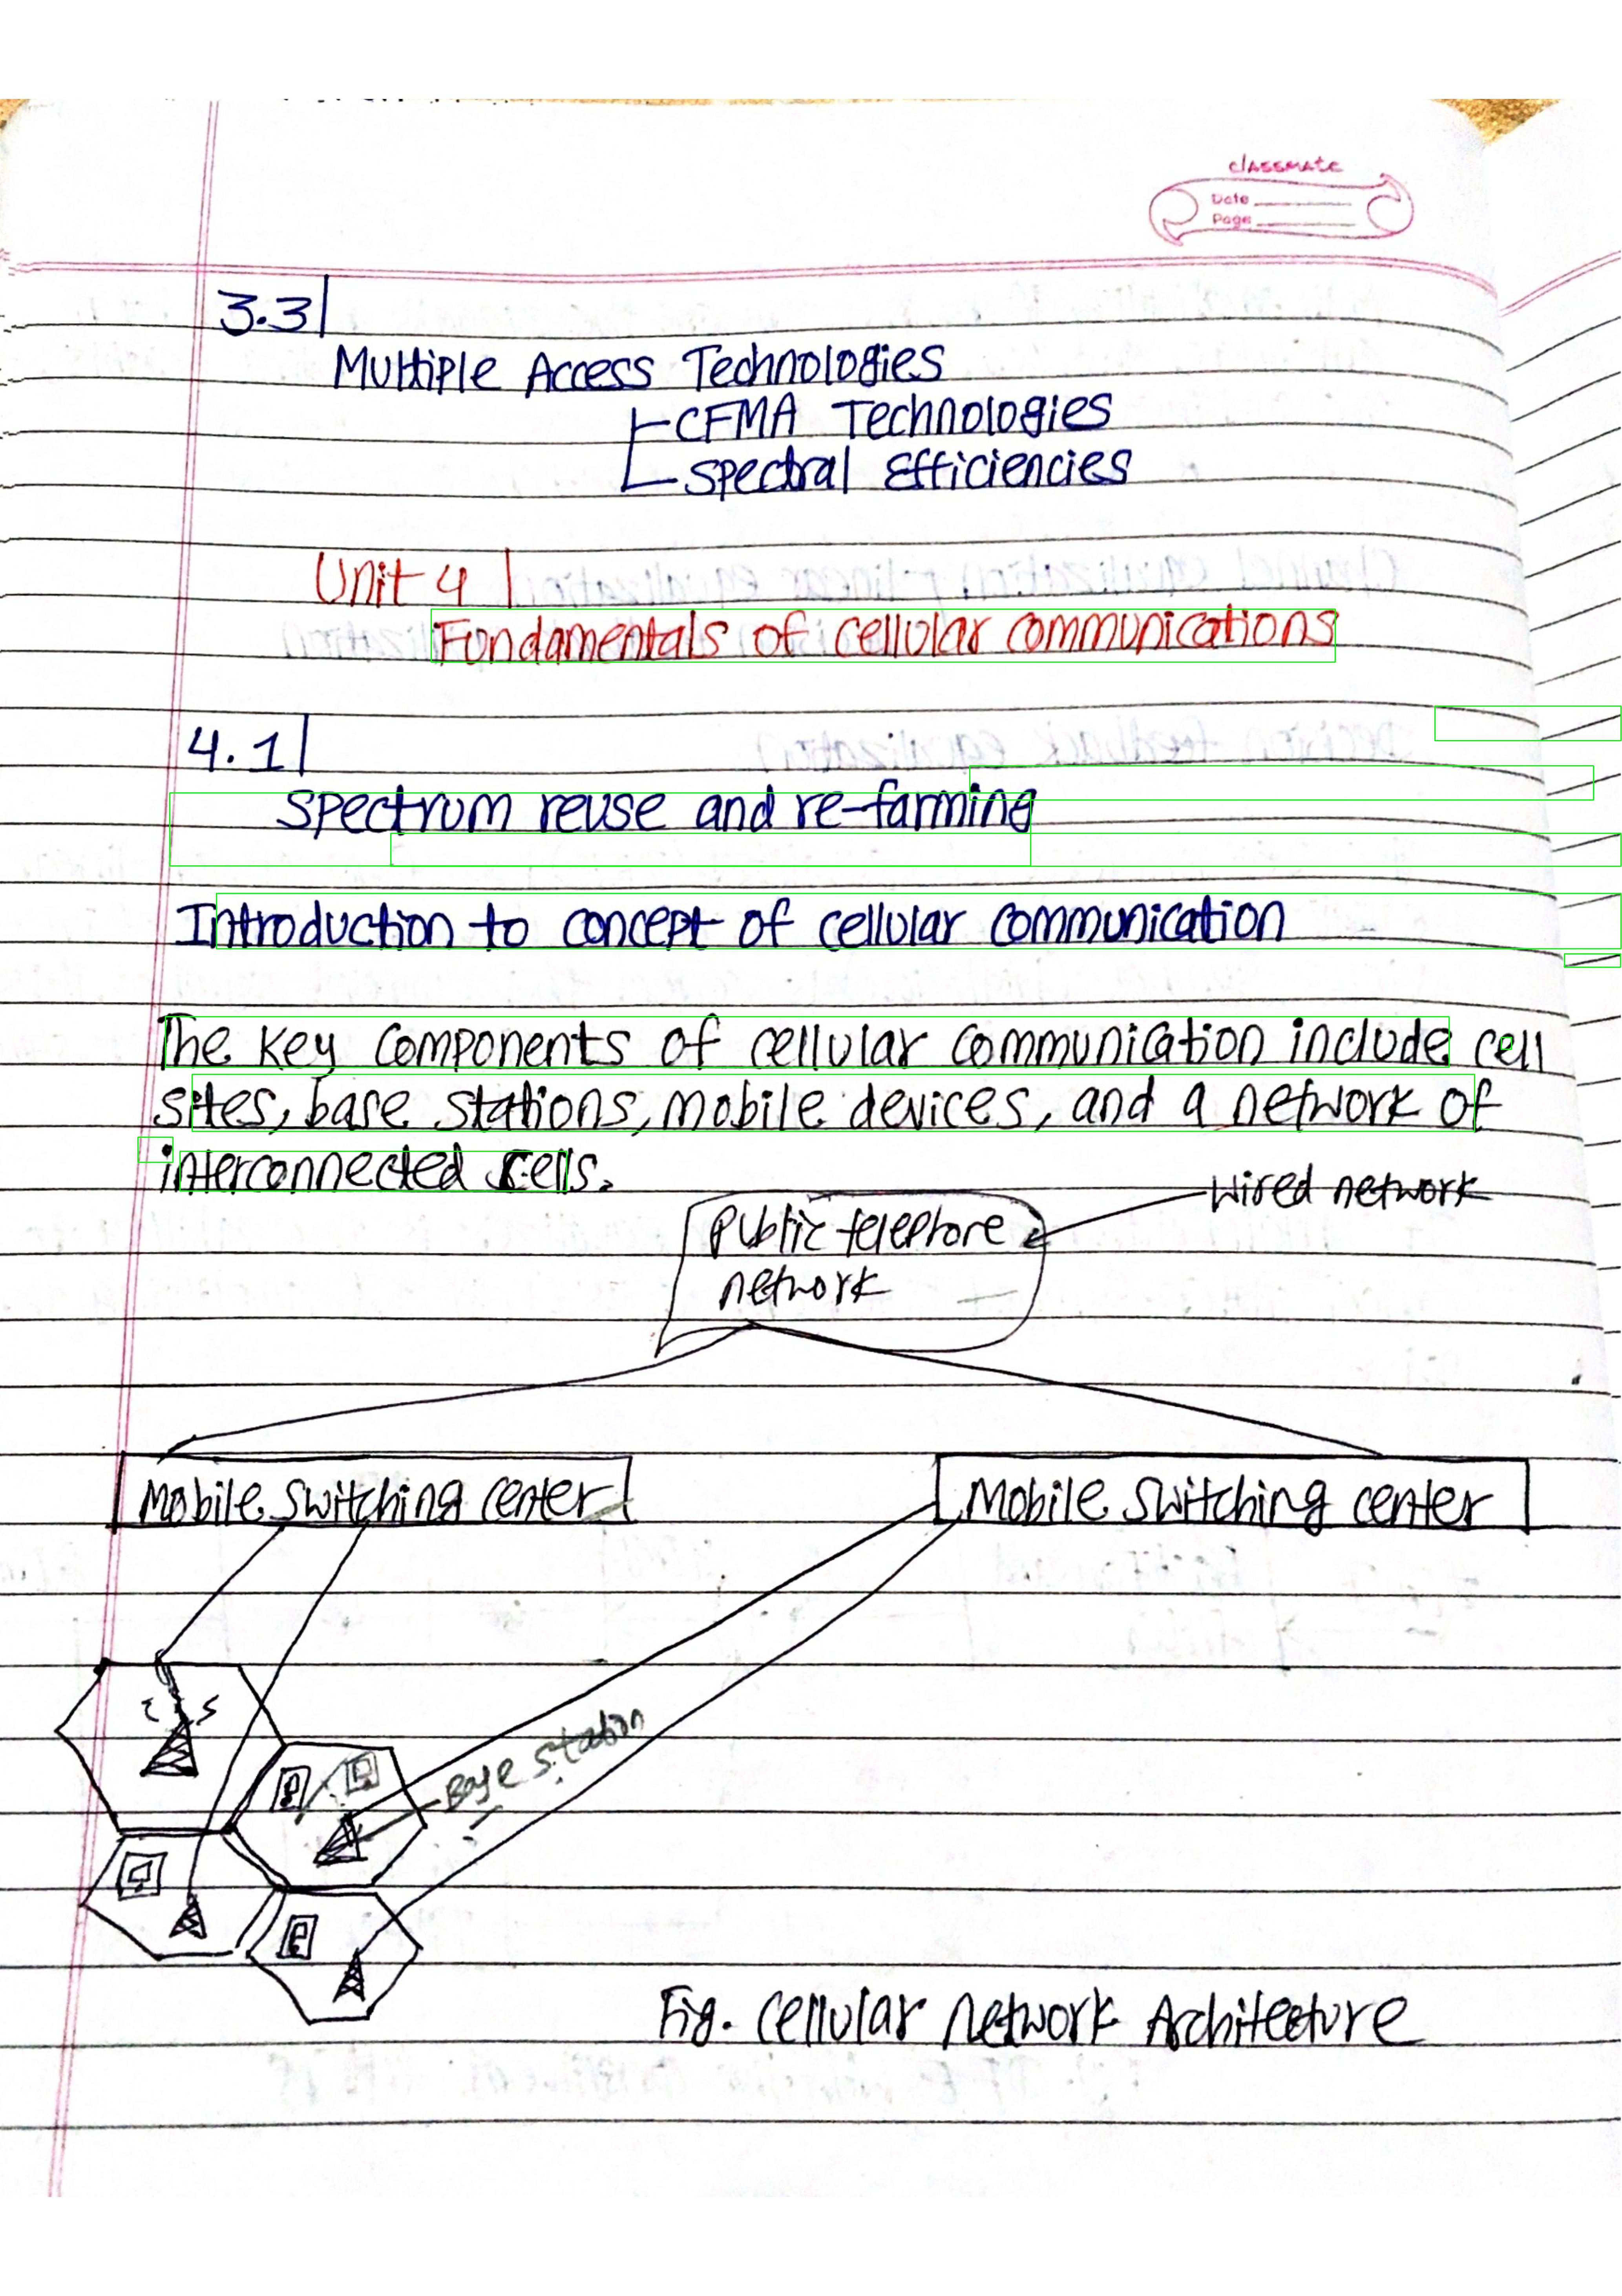 classmate
Date
Page
3.3
Multiple Access Technologies
CFMA Technologies
Spectral Efficiencies
Unit 4
Fundamentals of cellular communications
4.1
Spectrum reuse and re-farming
Introduction to concept of cellular communication
The key components of cellular communication include cell
sites, base stations, mobile devices, and a network of
interconnected cells.
Wired network
Public telephone
network
Mobile switching center
Mobile switching center
Base station
Fig. Cellular Network Architecture